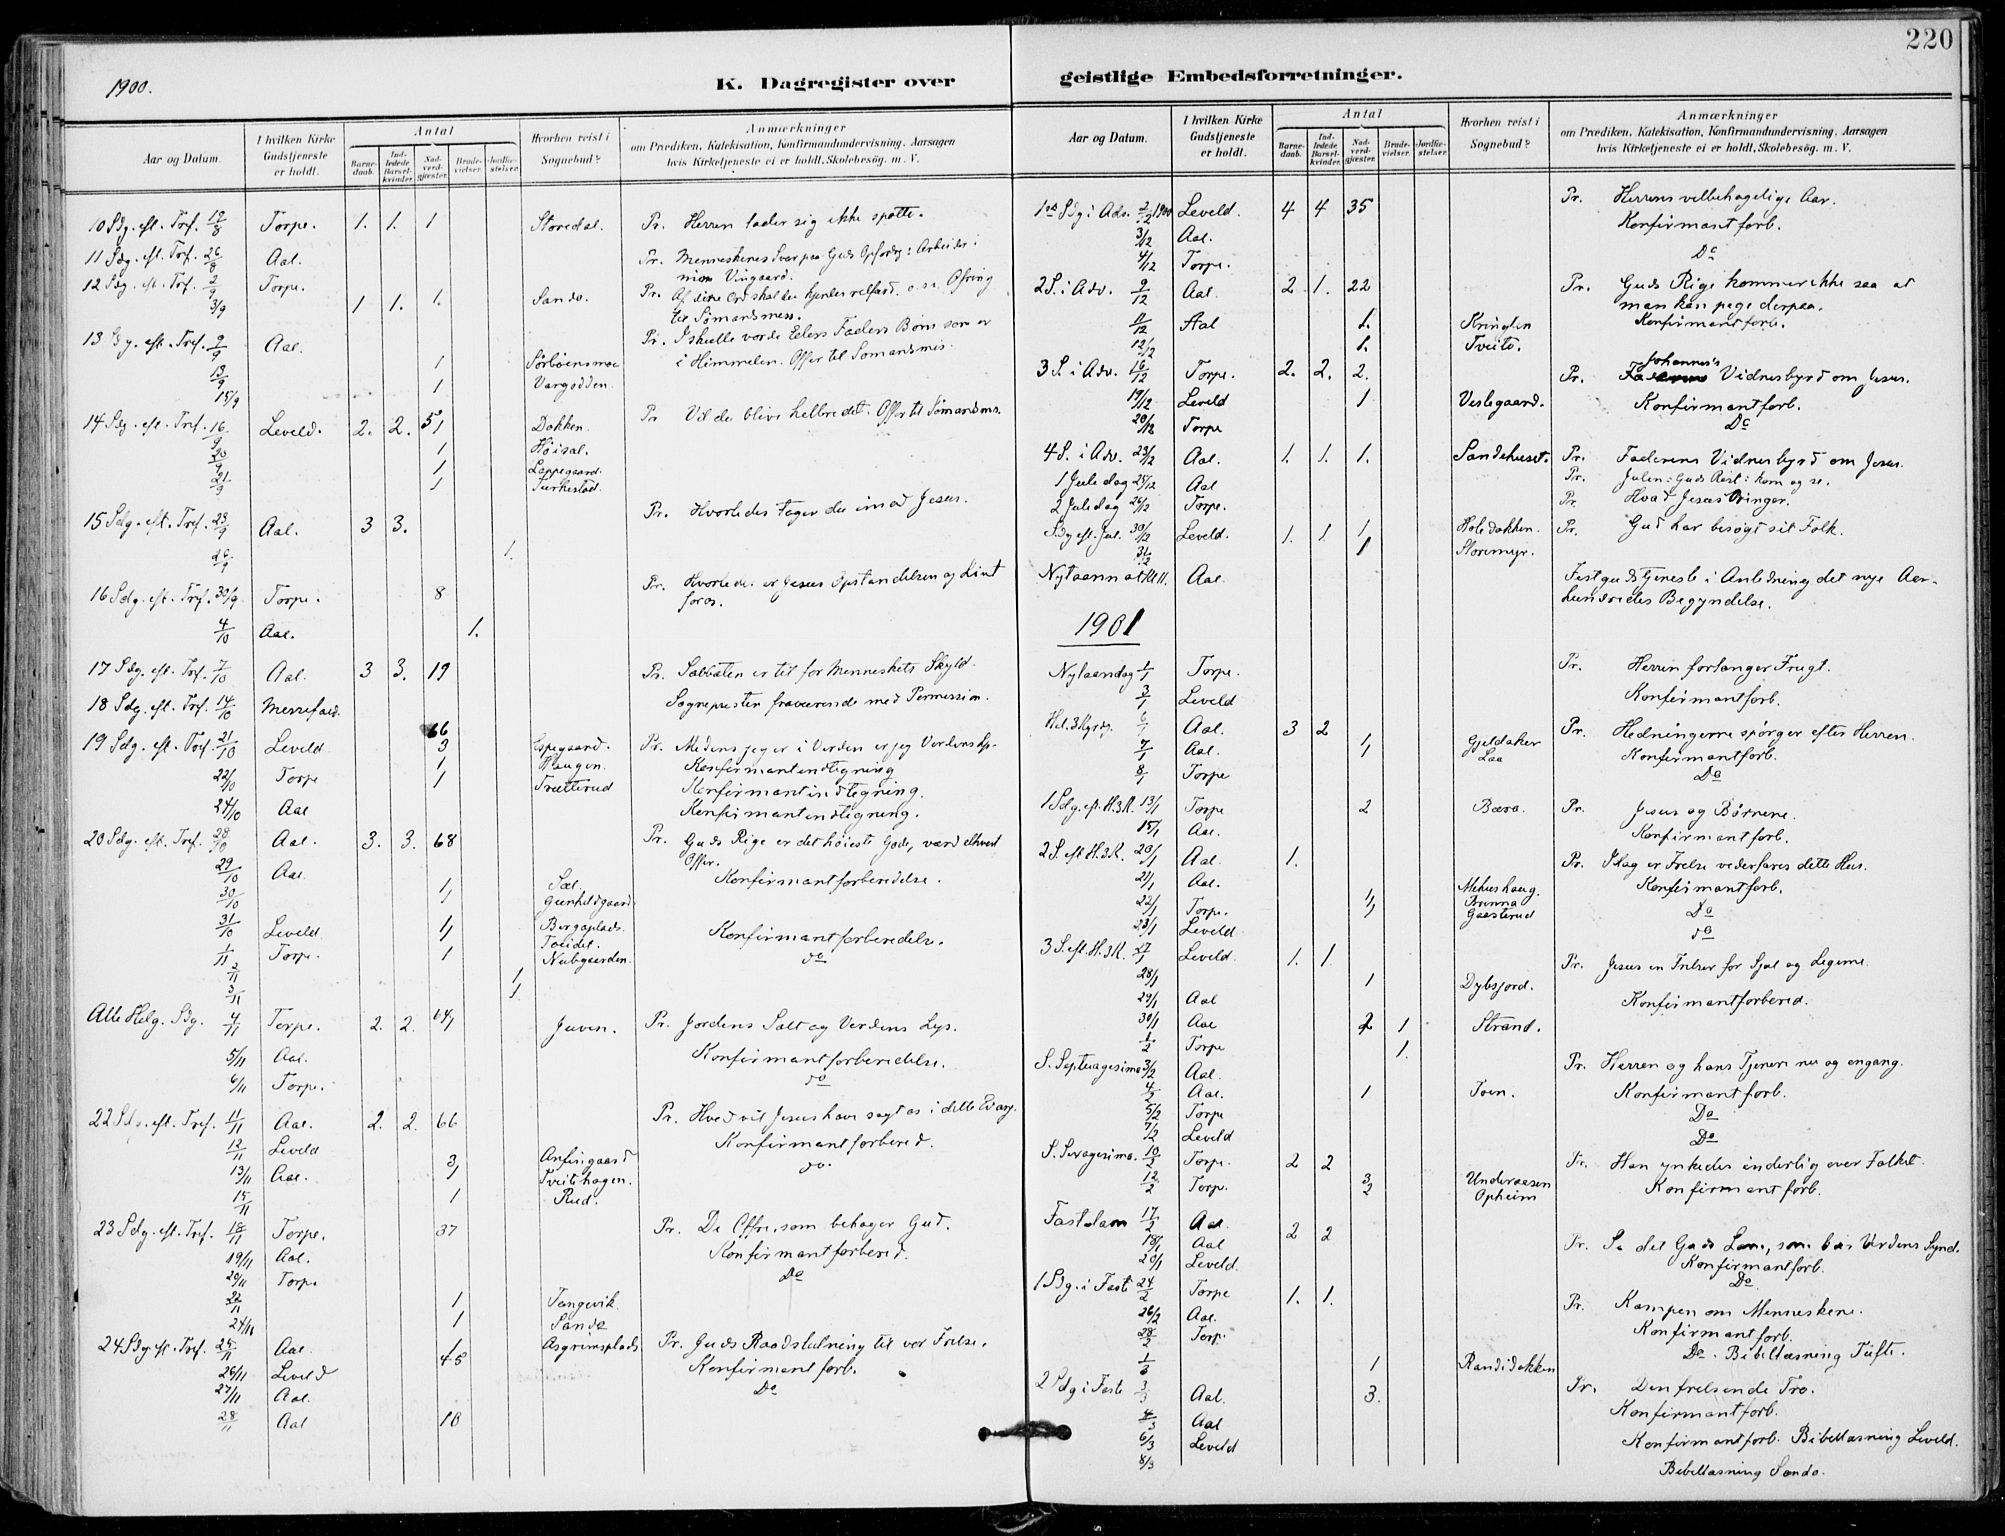 220
1900.
K. Dagregister over
geistlige Embedsforretninger.
Aar og Datum.
I hvilken Kirke Gudstjeneste er holdt.
Antal
Barnedaab.
Indledede Barselkvinder.
Nadverdgjæster.
Brudevielser.
Jordfæstelser.
Hvorhen reist i Sognebud?
Anmærkninger
om Prædiken, Katekisation, Konfirmandundervisning, Aarsagen
hvis Kirketjeneste ei er holdt, Skolebesög. m. V.
10 Sdg. eft. Tref. 19/8 Torpe. 1. 1. 1 Storedal. Pr. Herren lader sig ikke spotte.
11 Sdg. eft. Tref. 26/8 Aal. Pr. Menneskenes Svar paa Guds Opfordrg: Arbeider i
min Vingaard.
12 Sdg. eft. Tref. 2/9 Torpe. Pr. Af dine Ord skal du kjendes retfærd. o.s.v. Ofring
3/9 1 1. 1. Sando. til Sømandsmiss.
13 Sdg. eft. Tref. 9/9 Aal. Pr. I skulle vorde Eders Faders Børn som er
i Himmelen. Offer til Sømandsmis.
13/9 1 Sørbøensmoe
15/9 1 Vargodden.
14 Sdg. eft. Tref. 16/9 Leveld. 2. 2. 51 Dokken. Pr Vil du blive helbredet. Offer til Sømandsms.
20/9 1 Høisal.
21/9 1 Lappegaard.
1 Turkestad.
15 Sdg. eft. Tref. 23/9 Aal. 3 3. Pr. Hvorledes tager du imod Jesus.
26/9 1.
16 Sdg. eft. Tref. 30/9 Torpe. 8 Pr. Hvorledes er Jesus Opstandelsen og Livet
for os.
4/10 Aal. 1.
17 Sdg. eft. Tref. 7/10 Aal. 3 3. 19 Pr. Sabbaten er til for Menneskets Skyld.
18 Sdg. eft. Tref. 14/10 Messefald. Sognepresten fraværende med Permission.
66
19 Sdg. eft. Tref. 21/10 Leveld 3 Espegaard. Pr. Medens jeg er i Verden er jeg Verdens Lys.
1 Haugen. Konfirmantindtegning
22/10 Torpe 1 Trætterud Konfirmantindtegning.
24/10 Aal Konfirmantindtegning.
20 Sdg. eft. Tref. 28/10 Aal. 3. 3. 68 Pr. Guds Rige er det høieste Gode, værd ethvert
Offer.
29/10 Aal. Konfirmantforberedelse.
30/10 1 Sæl.
1 Gunhildgaard
31/10 Leveld 1 Bergaplads. Konfirmantforberedelse.
1 Toeidet.
1/11 Torpe. 1 Nubgaarden. do
2/11 1
3/11 1.
Alle Helg. Sdg. 4/11 Torpe. 2. 2. 64 Juven. Pr. Jordens Salt og Verdens Lys.
5/11 Aal. Konfirmantforberedelse.
6/11 Torpe. do
22 Sdg. eft. Tref. 11/11 Aal. 2. 2. 66 Pr. Hvad vil Jesus have sagt os i dette Evang.
12/11 Leveld Konfirmantforbered.
13/11 Aal. 3 Anfinsgaard do.
1 Tveithagen.
15/11 1 Rud.
23 Sdg. eft. Tref. 18/11 Torpe. 37 Pr. De Offre, som behager Gud.
19/11 Aal. Konfirmantforbered.
20/11 Torpe Do
22/11 1 Tangevik.
24/11 1 Sando
24 Sdg eft. Tref. 25/11 Aal. 1 Asgrimsplads Pr. Guds Raadslutning til vor Frelse.
45
26/11 Leveld Konfirmantforb.
27/11 Aal. Do
28/11 Aal 10
Aar og Datum.
I hvilken Kirke Gudstjeneste er holdt.
Antal
Barnedaab.
Indledede Barselkvinder.
Nadverdgjæster.
Brudevielser.
Jordfæstelser.
Hvorhen reist i Sognebud?
Anmærkninger
om Prædiken, Katekisation, Konfirmandundervisning, Aarsagen
hvis Kirketjeneste ei er holdt, Skolebesög. m. V.
1ste Sdg i Adv. 2/12 1900 Leveld. 4 4 35 Pr. Herrens velbehagelige Aar.
3/12 Aal. Konfirmantforb.
4/12 Torpe. Do
2 S. i Adv. 9/12 Aal. 2 1. 22 Pr. Guds Rige kommer ikke saa at
man kan pege derpaa.
11/12 Aal 1. Kringlen Konfirmantforb.
12/12 1. Tveito.
3 S. i Adv. 16/12 Torpe. 2. 2. 2. Pr. Johannes's Vidnesbyrd om Jesus.
19/12 Leveld 1 Veslegaard. Konfirmantforb.
20/12 Torpe Do
4 S. i Adv. 23/12 Aal. 1. 1. 1. Sandehuset. Pr. Faderens Vidnesbyrd om Jesus.
1 Juledag 25/12 Aal Pr. Julen: Guds Røst: kom og se.
2 Juledag 26/12 Torpe. Pr. Hvad Jesus bringer.
Sdg eft. Jul. 30/12 Leveld. 1. 1 1 Holedokken. Pr. Gud har besøgt sit Folk.
31/12 1 Storemyr.
Nytaarsnat Kl 11. Aal. Festgudstjeneste i Anledning det nye Aar-
hundredes Begyndelse.
1901
Nytaarsdag 1/1 Torpe. Pr. Herren forlanger Frugt.
3/1 Leveld Konfirmantforb.
Hel. 3 Kgrsdg. 6/1 Aal. 3 2 Pr. Hedningerne spørger efter Herren.
7/1 Aal. 1 Gjeldaker Konfirmantforb.
1 Laa
8/1 Torpe Do
1 Sdg. ef. H.3.K. 13/1 Torpe 2 Bæra. Pr. Jesus og Børnene.
15/1 Aal. Konfirmantforb.
2 S. eft H.3.K. 20/1 Aal. 1. Pr. Idag er Frelse vederfares dette Hus.
21/1 Aal. Mehushaug. Konfirmantforb.
22/1 Torpe. 1 Brenna Do
1 Gaasterud
23/1 Leveld do
3 S. eft. H.3K. 27/1 Leveld. 1. 1. Pr. Jesus en Frelser for Sjæl og Legeme.
28/1 1 Dybsjord.
29/1 Aal Konfirmantforbered.
30/1 Aal 2 1 Strand.
1/2 Torpe 1.
S. Septuagesima 3/2 Aal. Pr. Herren og hans Tjenere nu og engang.
4/2 Aal. 1 Toen. Konfirmantforb.
5/2 Torpe Do
7/2 Leveld Do
S. Sexagesima. 10/2 Torpe. 2 2 Pr. Han ynkedes inderlig over Folket.
12/2 Torp. 3 Underaasen Konfirmantforb.
2 Opheim
Fastelavn 17/2 Aal. 2 2 Pr. Se det Guds Lam, som bar Verdens Synd.
18/1 Aal Konfirmantforb.
20/1 Leveld. Do
1 Sdg. i Faste 24/2 Torpe 1. 1. Pr. Kampen om Menneskene.
26/2 Aal. Konfirmantforb.
28/2 Torp. Do. Bibellæsning Tufte.
1/3 1 Randidokken
2 Sdg i Faste 3/3 Aal. 3. Pr. Den frelsende Tro.
4/3 Aal Konfirmantforb.
6/3 Leveld Konfirmantforb. Bibellæsning Leveld.
8/3 Bibellæsning Sando.